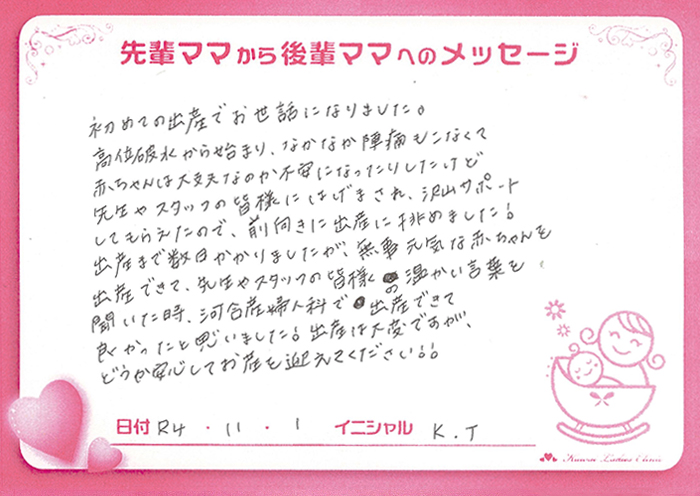 先輩ママから後輩ママへのメッセージ
初めての出産でお世話になりました。
高位破水から始まり、なかなか陣痛もこなくて
赤ちゃんは大丈夫なのか不安になったりしたけど
先生やスタッフの皆様にはげまされ、沢山サポート
してもらえたので、前向きに出産に挑めました!
出産まで数日かかりましたが、無事元気な赤ちゃんを
出産できて、先生やスタッフの皆様の温かい言葉を
聞いた時、河合産婦人科で出産できて
良かったと思いました!出産は大変ですが、
どうか安心してお産を迎えてください!!
日付 R4・11・1 イニシャル K.T
Kawai Ladies Clinic